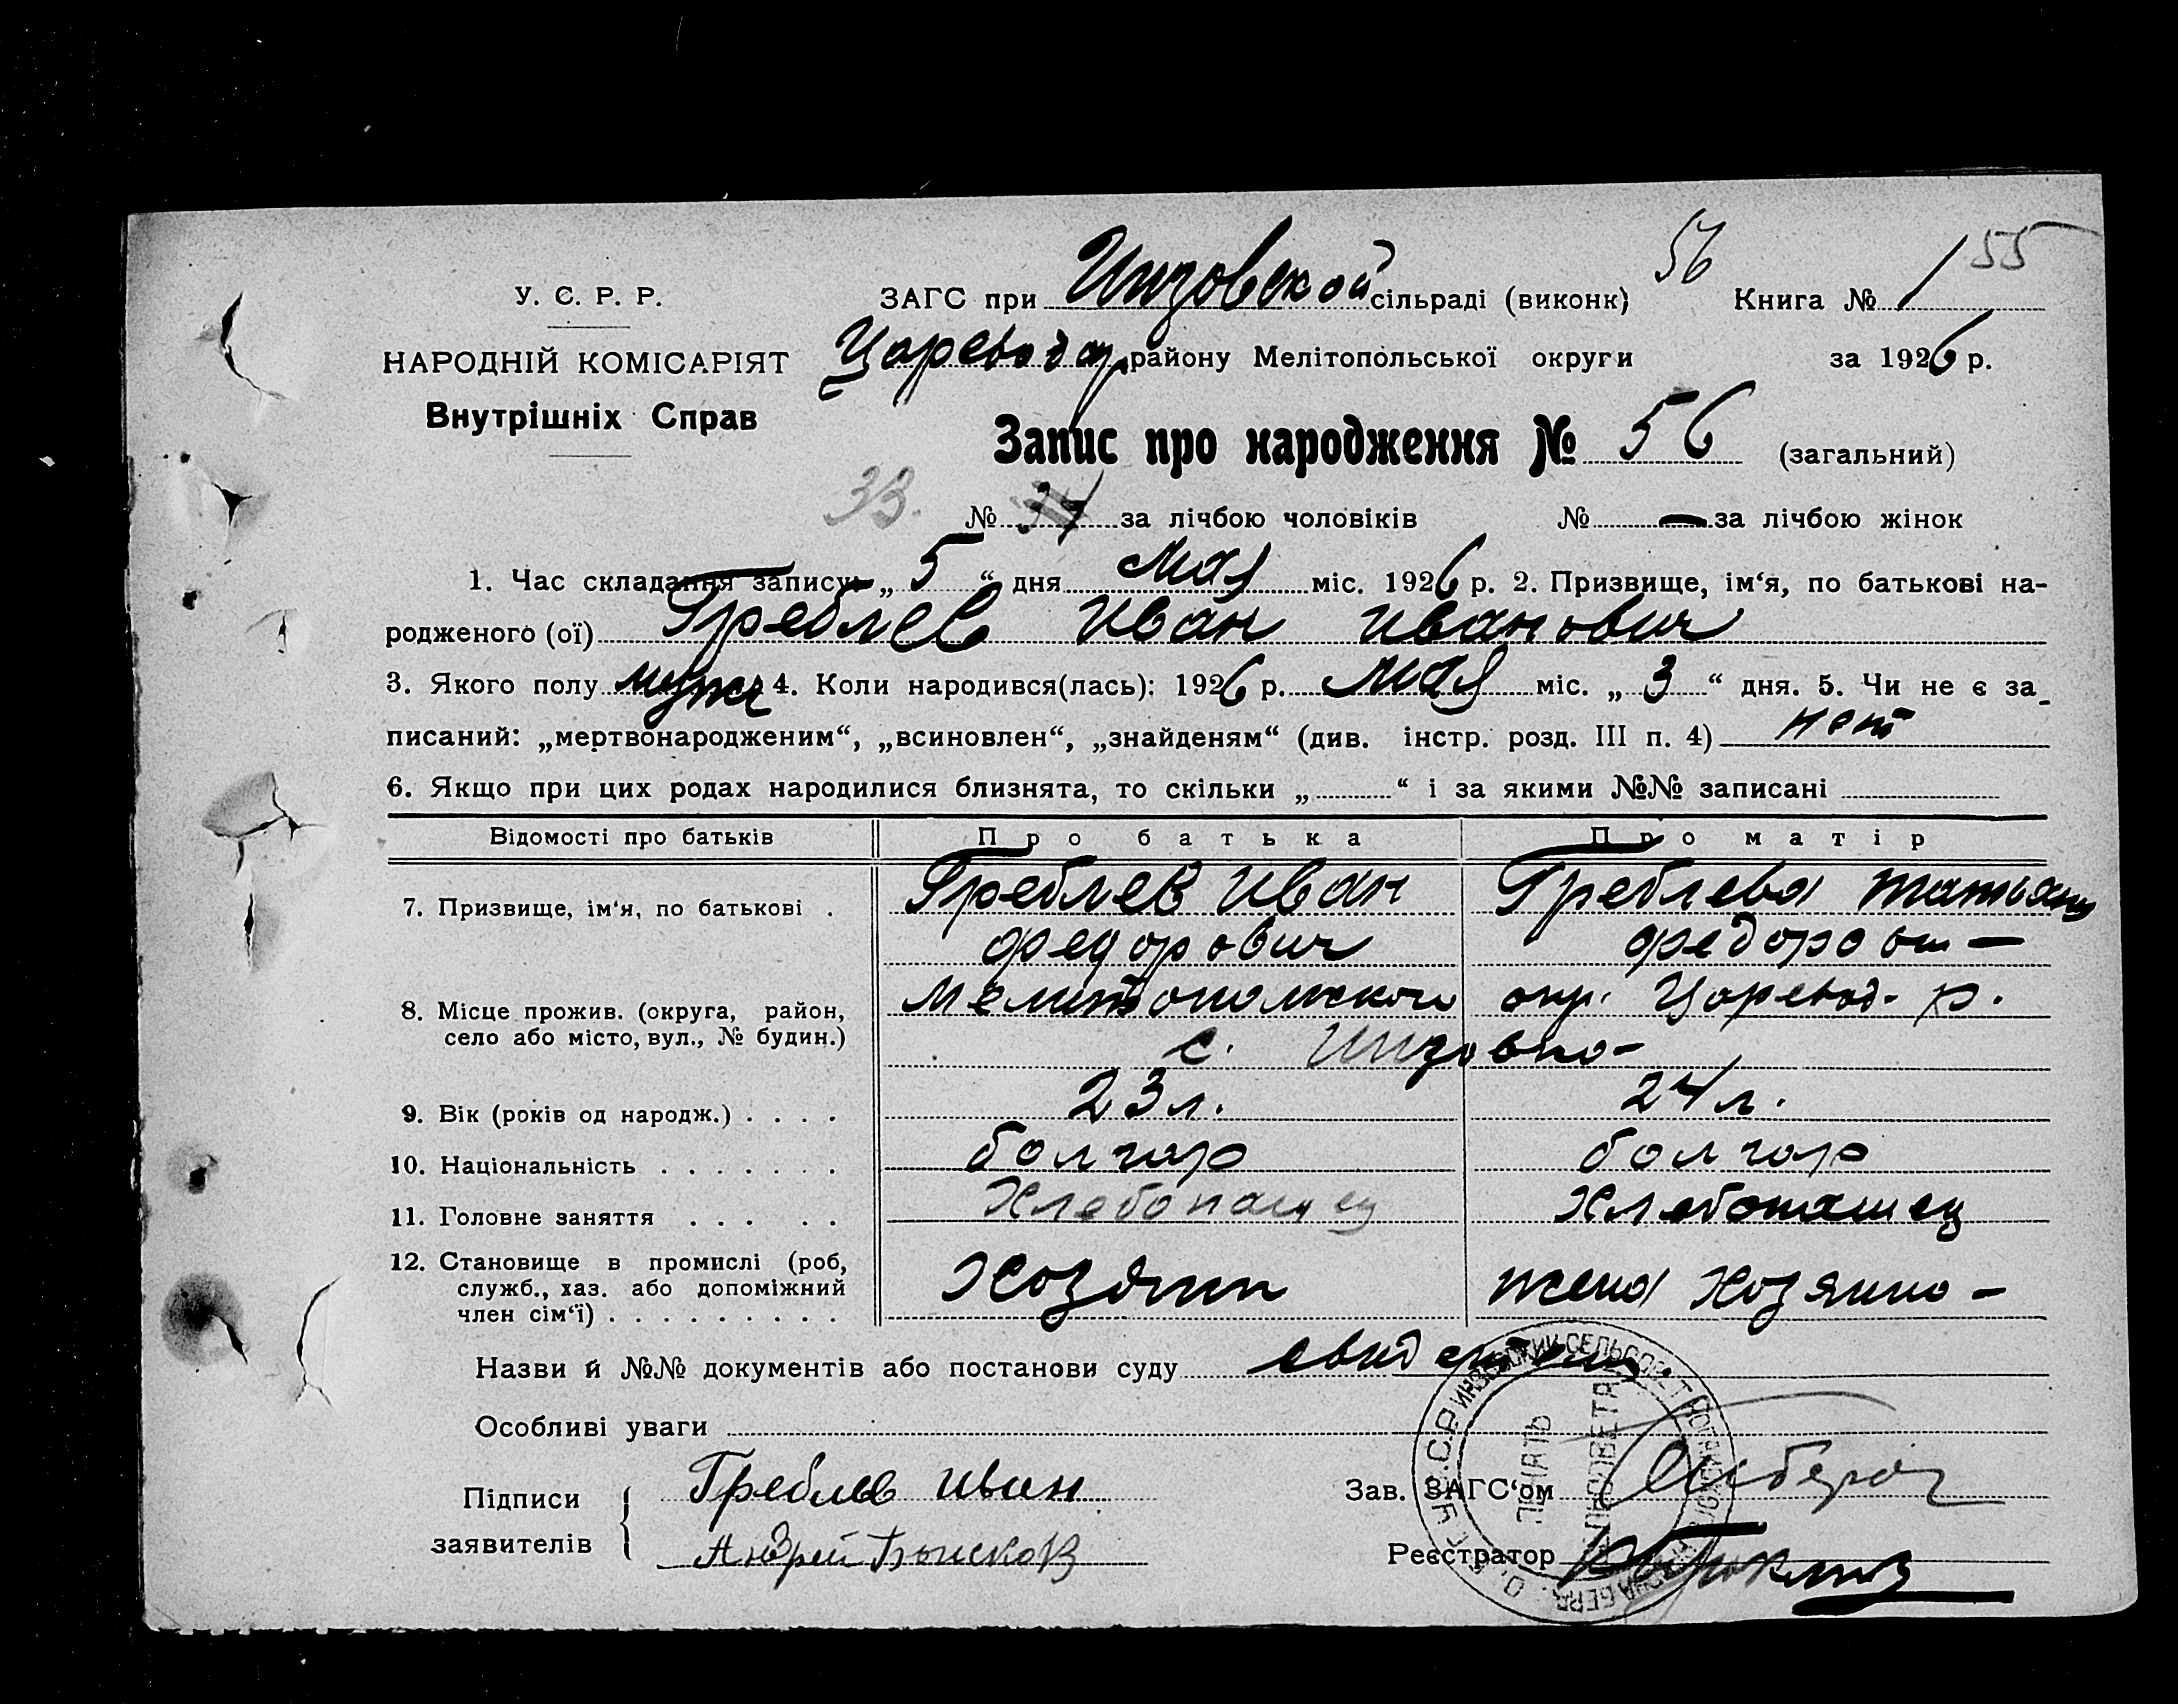 56 55
У. С. Р. Р. ЗАГС при Инзовской сільраді (виконк) Книга № 1
НАРОДНІЙ КОМІСАРІЯТ Царевода району Мелітопольської округи за 1926 р.
Внутрішніх Справ
Запис про народження № 56 (загальний)
33. № за лічбою чоловіків № — за лічбою жінок
1. Час складання запису: „ 5 “ дня мая міс. 1926 р. 2. Призвище, ім‘я, по батькові на-
родженого (ої) Греблев Иван Иванович
3. Якого полу мужск 4. Коли народився(лась): 1926 р. мая міс. „ 3 “ дня. 5. Чи не є за
писаний: „мертвонародженим“, „всиновлен“, „знайденям“ (див. інстр. розд. III п. 4) нет
6. Якщо при цих родах народилися близнята, то скільки „ “ і за якими №№ записані
Відомості про батьків Про батька Про матір
7. Призвище, ім‘я, по батькові . Греблев Иван Греблева Татьяна
Федорович Федоров —
8. Місце прожив. (округа, район, Мелитопольского окр. Царевод. р.
село або місто, вул., № будин.) с. Инзовка-
9. Вік (років од народж.) . . . . 23 л. 24 л.
10. Національність . . . . . . . болгар болгар
11. Головне заняття . . . . . Хлебопашец Хлебопашец
12. Становище в промислі (роб, Хозяин жена хозяина -
служб., хаз. або допоміжний
член сім‘ї) . . . . . . . . .
Назви й №№ документів або постанови суду
Особливі уваги
Підписи Греблев Иван Зав. ЗАГС‘ом
заявителів Андрей Реєстратор
ИНЗОВСКИЙ СЕЛЬСОВЕТ